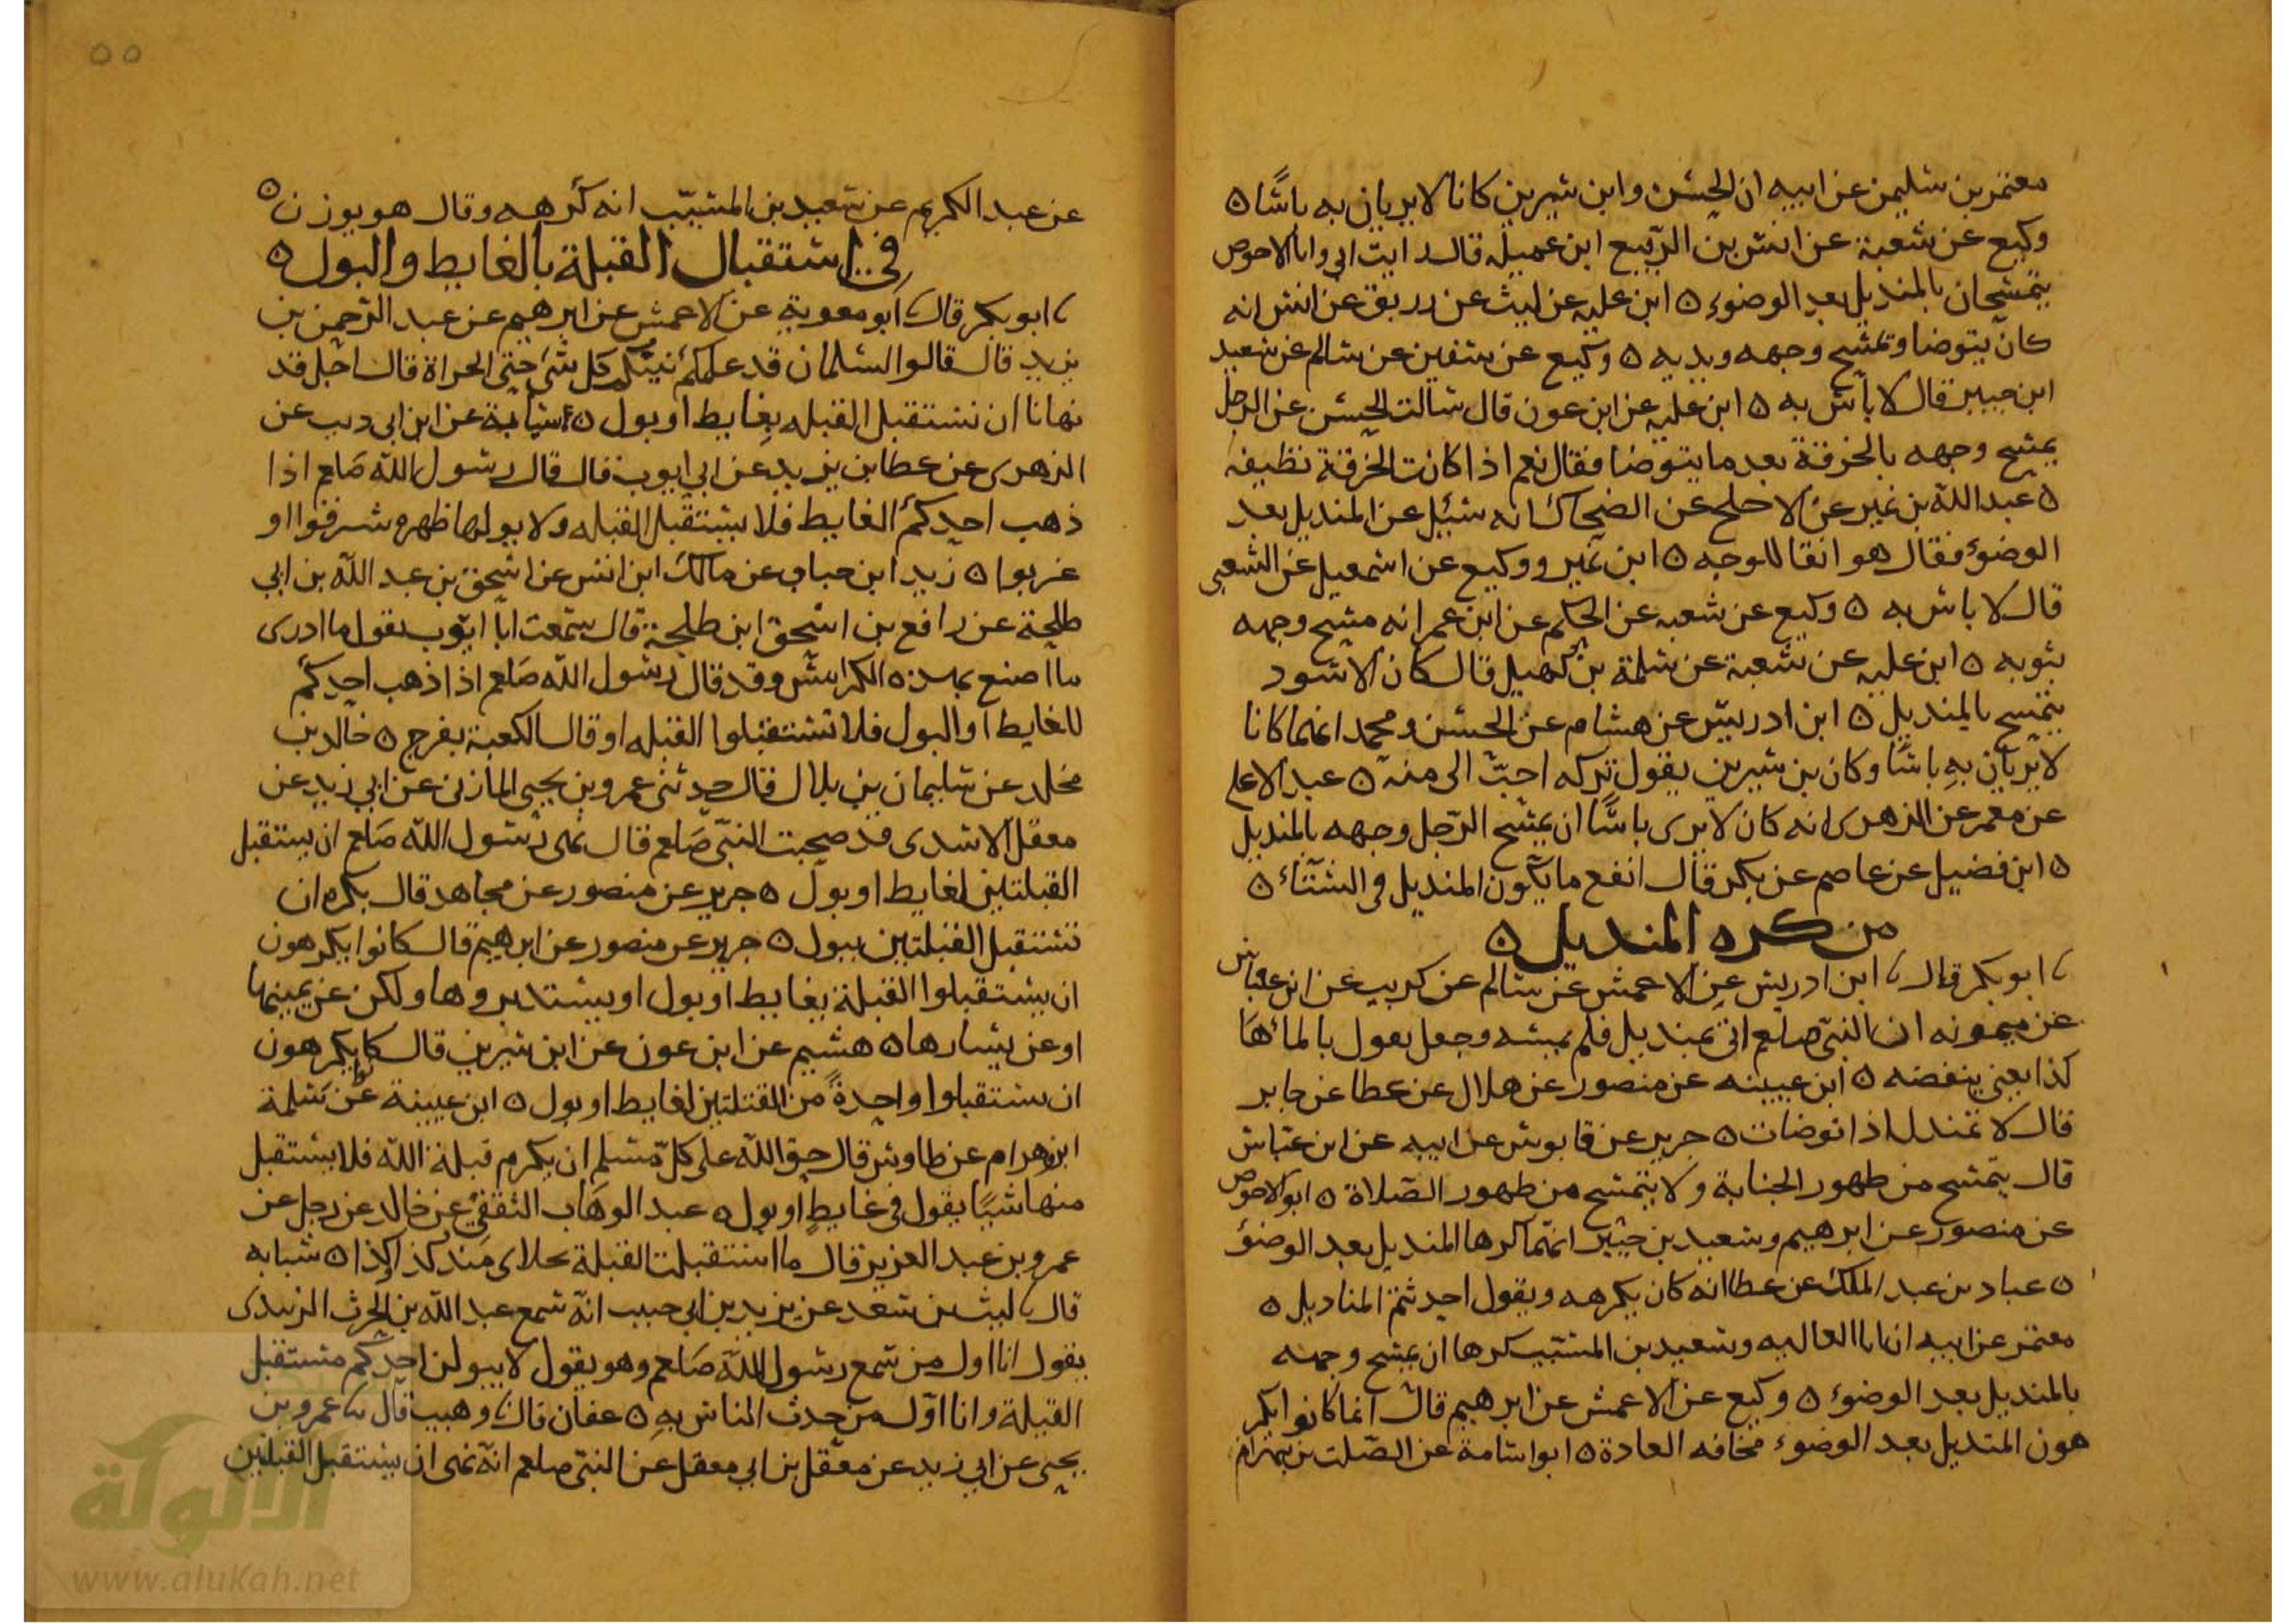 معتمر بن سليمن عن ابيه ان الحسن وابن سيرين كانا لا يريان به باسًا ه
وكيع عن شعبة عن انس بن الربيع ابن عميلة قال رايت ابي وابا الاحوص
يتمسحان بالمنديل بعد الوضوء ه ابن عليه عن ليث عن رزيق عن انس انه
كان يتوضا ويمسح وجهه ويديه ه وكيع عن سفين عن سالم عن سعيد
ابن جبير قال لا بأس به ه ابن عليه عن ابن عون قال سالت الحسن عن الرجل
يمسح وجهه بالخرقة بعد ما يتوضا فقال نعم اذا كانت الخرقة نظيفه
ه عبد الله بن نمير عن الاجلح عن الضحاك انه سئل عن المنديل بعد
الوضوء فقال هو انقا للوجه ه ابن نمير ووكيع عن اسمعيل عن الشعبي
قال لا باس به ه وكيع عن شعبه عن الحكم عن ابن عمر انه مسح وجهه
بثوبه ه ابن عليه عن شعبة عن سلمة بن كهيل قال كان الاسود
يتمسح بالمنديل ه ابن ادريس عن هشام عن الحسن ومحمد انهما كانا
لا يريان به باسًا وكان بن سيرين يقول تركه احبّ الى منه ه عبد الاعلى
عن معمر عن الزهرى انه كان لا يرى باسًا ان يمسح الرّجل وجهه بالمنديل
ه ابن فضيل عن عاصم عن بكر قال انفع ما يكون المنديل فى الشتاء ه
من كره المنديل ه
ابو بكر قال ابن ادريس عن الاعمش عن سالم عن كريب عن ابن عباس
عن ميمونه ان النبي صلعم اتى بمنديل فلم يمسه وجعل يقول بالماء ها
كذا يعنى ينفضه ه ابن عيينه عن منصور عن هلال عن عطا عن جابر
قال لا تمندل اذا توضات ه جرير عن قابوس عن ابيه عن ابن عبّاس
قال يتمسح من طهور الجنابة ولا يتمسح من طهور الصّلاة ه ابو الاحوص
عن منصور عن ابرهيم وسعيد بن جبير انّهما كرها المنديل بعد الوضوء
ه عباد بن عبد الملك عن عطا انه كان يكرهه ويقول احدثتم المناديل ه
معتمر عن ابيه ان ابا العاليه وسعيد بن المسيّب كرها ان يمسح وجهه
بالمنديل بعد الوضوء ه وكيع عن الاعمش عن ابرهيم قال انما كانوا يكر
هون المنديل بعد الوضوء مخافه العادة ه ابو اسامة عن الصّلت بن بهرام
٥٥
عن عبد الكريم عن سعيد بن المسيّب انه كرهه وقال هو يوزن ه
في استقبال القبلة بالغايط والبول ه
ابو بكر قال ابو معوية عن الاعمش عن ابرهيم عن عبد الرّحمن بن
يزيد قال قالوا لسلمان قد علمكم نبيّكم كل شئ حتى الخراة قال اجل قد
نهانا ان نستقبل القبله بغايط او بول ه شبابة عن ابن ابى ديب عن
الزهرى عن عطا بن يزيد عن ابي ايوب قال قال رسول الله صلعم اذا
ذهب احدكم الغايط فلا يستقبل القبله ولا يولها ظهره شرقوا او
غربوا ه زيد ابن حباب عن مالك ابن انس عن اسحق بن عبد الله بن ابي
طلحة عن رافع بن اسحق ابن طلحة قال سمعت ابا ايّوب يقول ما ادرى
ما اصنع بهذه الكراييس وقد قال رسول الله صلعم اذا ذهب احدكم
للغايط او البول فلا تستقبلوا القبله او قال الكعبة بفرج ه خالد بن
مخلد عن سليمان بن بلال قال حدثنى عمرو بن يحيى المازنى عن ابي زيد عن
معقل الاسدى قد صحبت النبي صلعم قال نهى رسول الله صلعم ان يستقبل
القبلتين لغايط او بول ه جرير عن منصور عن مجاهد قال يكره ان
تستقبل القبلتين ببول ه جرير عن منصور عن ابرهيم قال كانوا يكرهون
ان يستقبلوا القبلة بغايط او بول او يستدبروها ولكن عن يمينها
او عن يسارها ه هشيم عن ابن عون عن ابن سيرين قال كانوا يكرهون
ان يستقبلوا واحدةً من القبلتين لغايط او بول ه ابن عيينة عن سلمة
ابن وهرام عن طاوس قال حق الله على كلّ مسلم ان يكرم قبلة الله فلا يستقبل
منها شيًا يقول في غايط او بول ه عبد الوهاب الثقفي عن خالد عن رجل عن
عمرو بن عبد العزيز قال ما استقبلت القبلة بخلاى منذ كذا وكذا ه شبابه
قال ليث بن سعد عن يزيد بن ابي حبيب انه سمع عبد الله بن الحرث الزبيدى
يقول انا اول من سمع رسول الله صلعم وهو يقول لا يبولن احدكم مستقبل
القبلة وانا اوّل من حدث الناس به ه عفان قال وهيب قال عمرو بن
يحيى عن ابي زيد عن معقل بن ابي معقل عن النبّى صلعم انه نهى ان يستقبل القبلتين
الألوكة
www.alukah.net